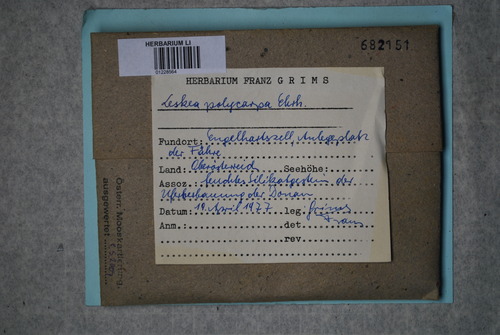 HERBARIUM LI
01228064
682151
HERBARIUM FRANZ GRIMS
Leskea polycarpa Ehrh.
Fundort: Engelhartszell, Anlegeplatz
der Fähre
Land: Oberösterreich Seehöhe:
Assoz. feuchtes Silikatgestein der
Uferverbauung der Donau
Datum: 19. April 1977 leg. Grims
Franz
Anm.: det.
rev.
Österr. Mooskartierung,
ausgewertet